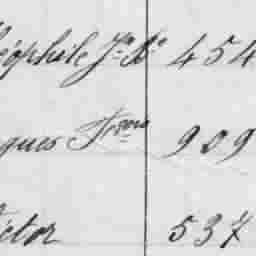 éophile Jn Be 454
ques Frcois 909
ictor 537